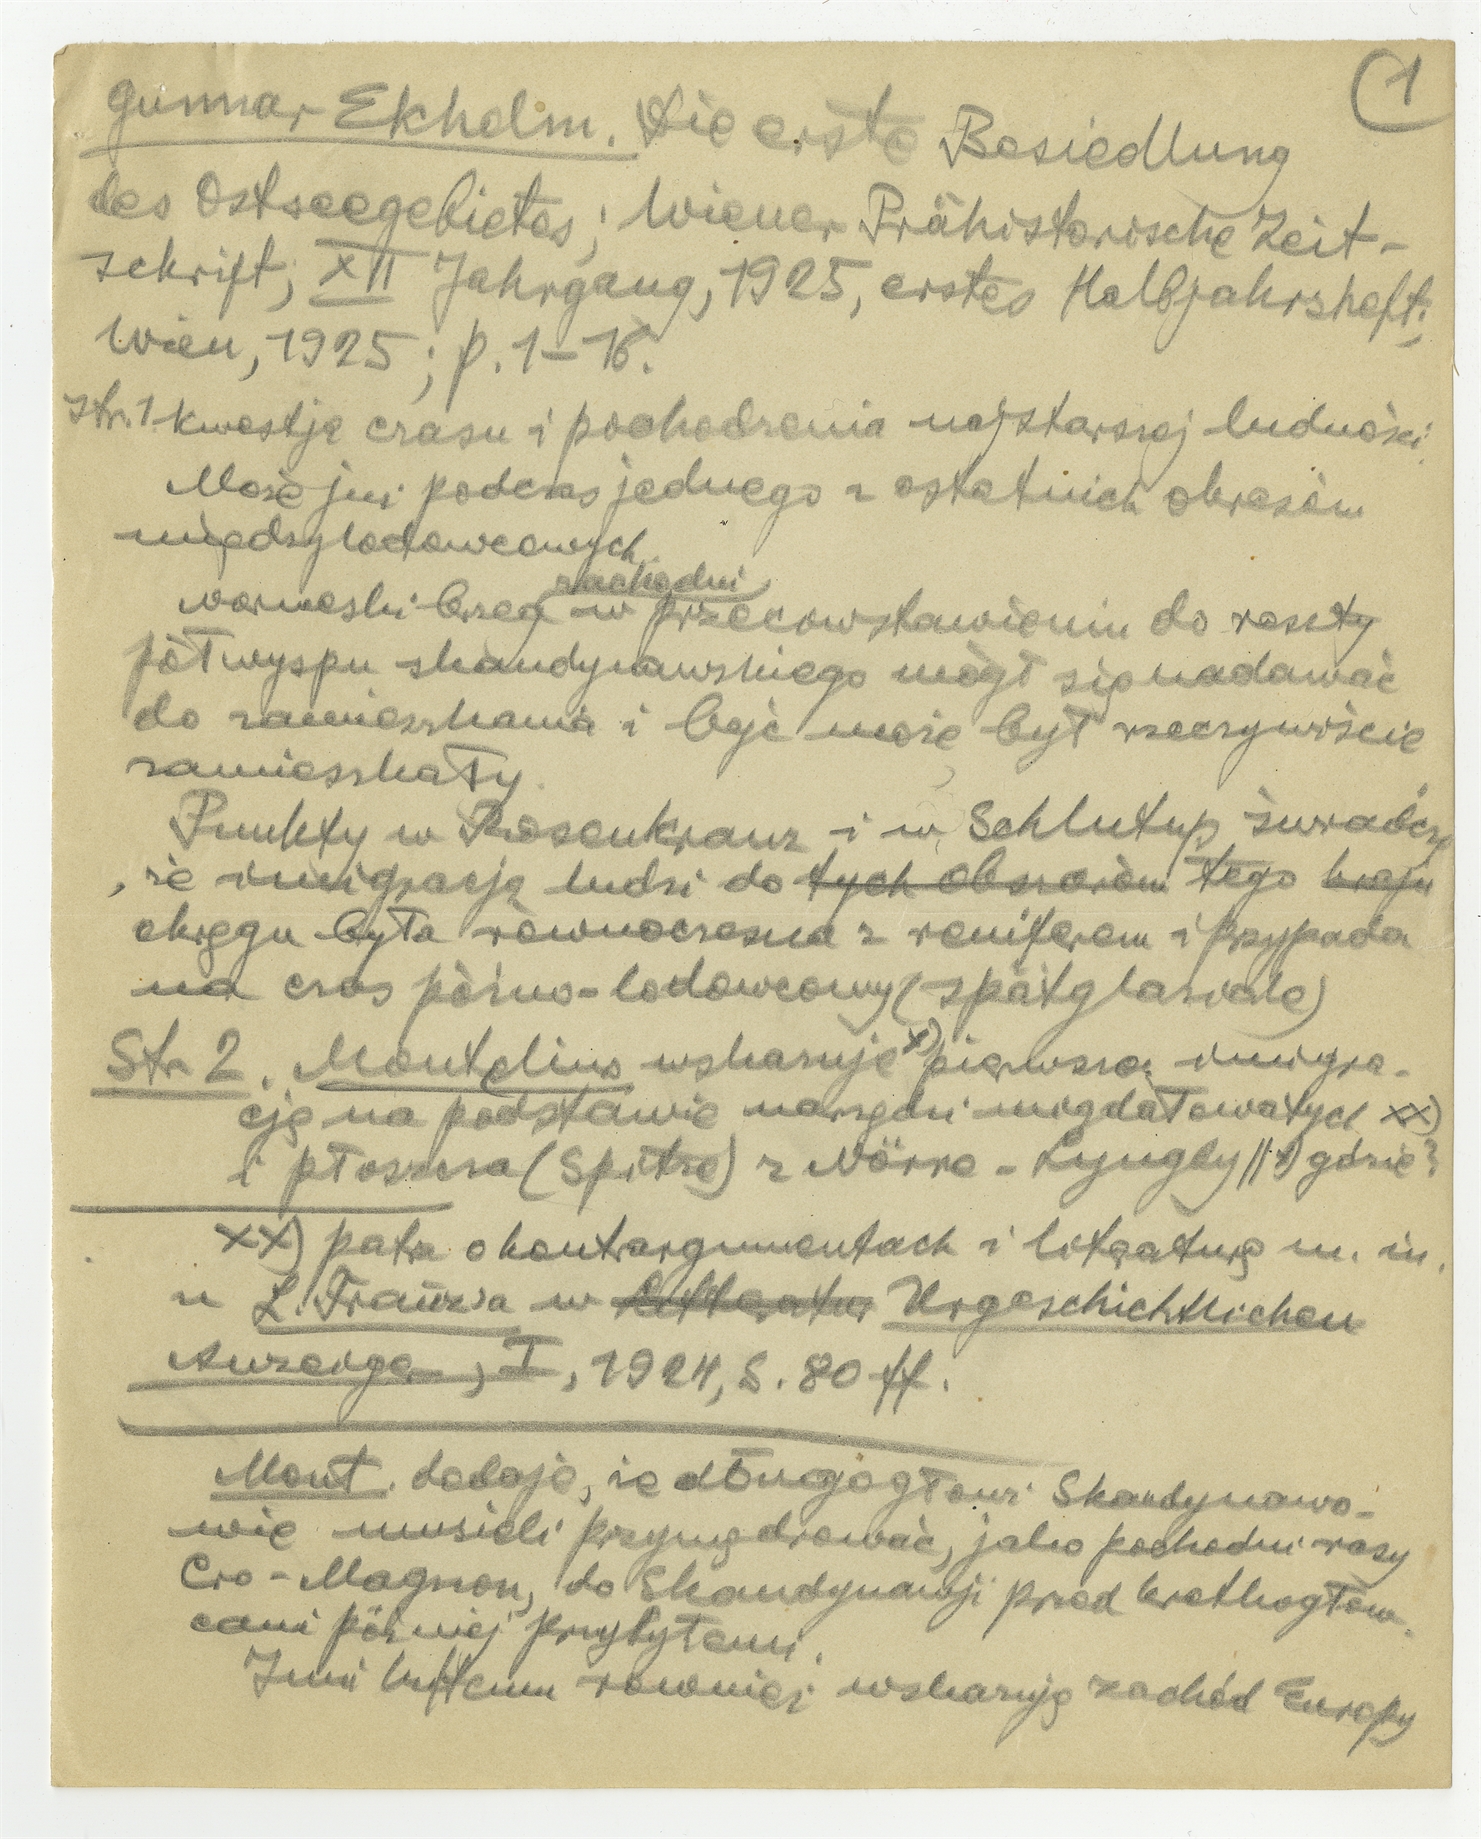 1
Gunnar Ekholm. Die erste Besiedlung
des Ostseegebietes; Wiener Prähistorische Zeit-
schrift, XII Jahrgang, 1925, erstes Halbjahrsheft;
Wien, 1925; p. 1–16.
Str. 1. kwestję czasu i pochodzenia najstarszej ludności.
Może już podczas jednego z ostatnich okresów
międzylodowcowych.
zachodni
norweski brzeg w przeciwstawieniu do reszty
półwyspu skandynawskiego mógł się nadawać
do zamieszkania i być może był rzeczywiście
zamieszkały.
Punkty w Rosenkranz i w Schlutup świadczą
, że imigracja ludzi do tych obszarów tego kraju
okręgu była równoczesna z reniferem i przypada
na czas późno-lodowcowy (spätglaziale)
Str 2. Montelius wskazuje x) pierwszą imigra-
cję na podstawie narzędzi migdałowatych xx)
i płoszcza (Spitze) z Nörre-Lyngby // x) gdzie?
xx) patrz o kontrargumentach i literaturę m. in.
u L. Franz'a w Urgeschichtlichen
Anzeiger, I, 1924, S. 80 ff.
Mont. dodaje, że długogłowi Skandynawo-
wie musieli przywędrować, jako pochodni rasy
Cro-Magnon, do Skandynawji przed krótkogłow-
cami później przybyłemi.
Inni również wskazują zachód Europy